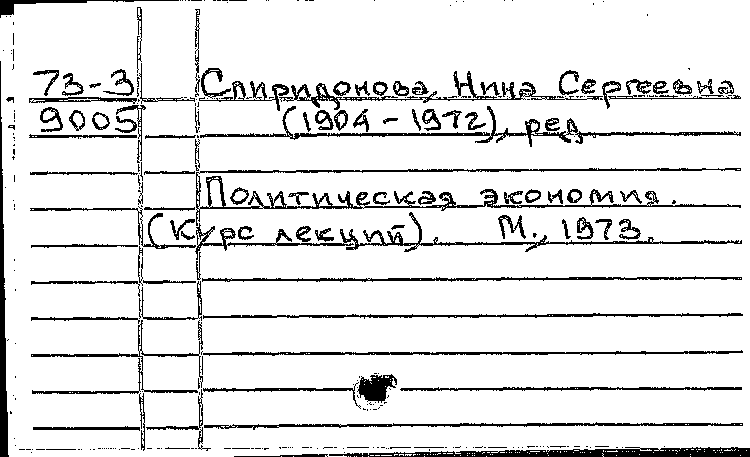 73-3 Спиридонова, Нина Сергеевна
9005 (1904-1972), ред.
Политическая экономия.
(Курс лекций). М., 1973.